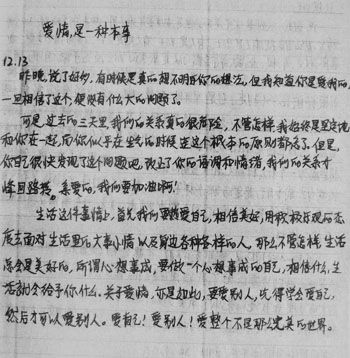 爱情,是一种本事
12.13
昨晚,说了好多,有时候是真的想不明白你的想法,但我知道你是爱我的,
一旦相信了这个,便没有什么大的问题了。
可是,过去的三天里,我们的关系真的很危险,不管怎样,我始终是坚定地
和你在一起,而你似乎在生气的时候连这个根本的原则都忘了,但是,
你自己很快发现了这个问题吧,改正了你的语调和情绪,我们的关系才
峰回路转。亲爱的,我们要加油啊!
生活这件事情上,首先我们要爱自己,相信美好,用积极乐观的态
度去面对生活里的大事小情以及身边各种各样的人,那么不管怎样,生活
总会是美好的,所谓心想事成,要做一个心想事成的自己,相信什么,生
活就会给予你什么。关于爱情,亦是如此,要爱别人,先得学会爱自己,
然后才可以爱别人。爱自己!爱别人!爱整个不是那么完美的世界。